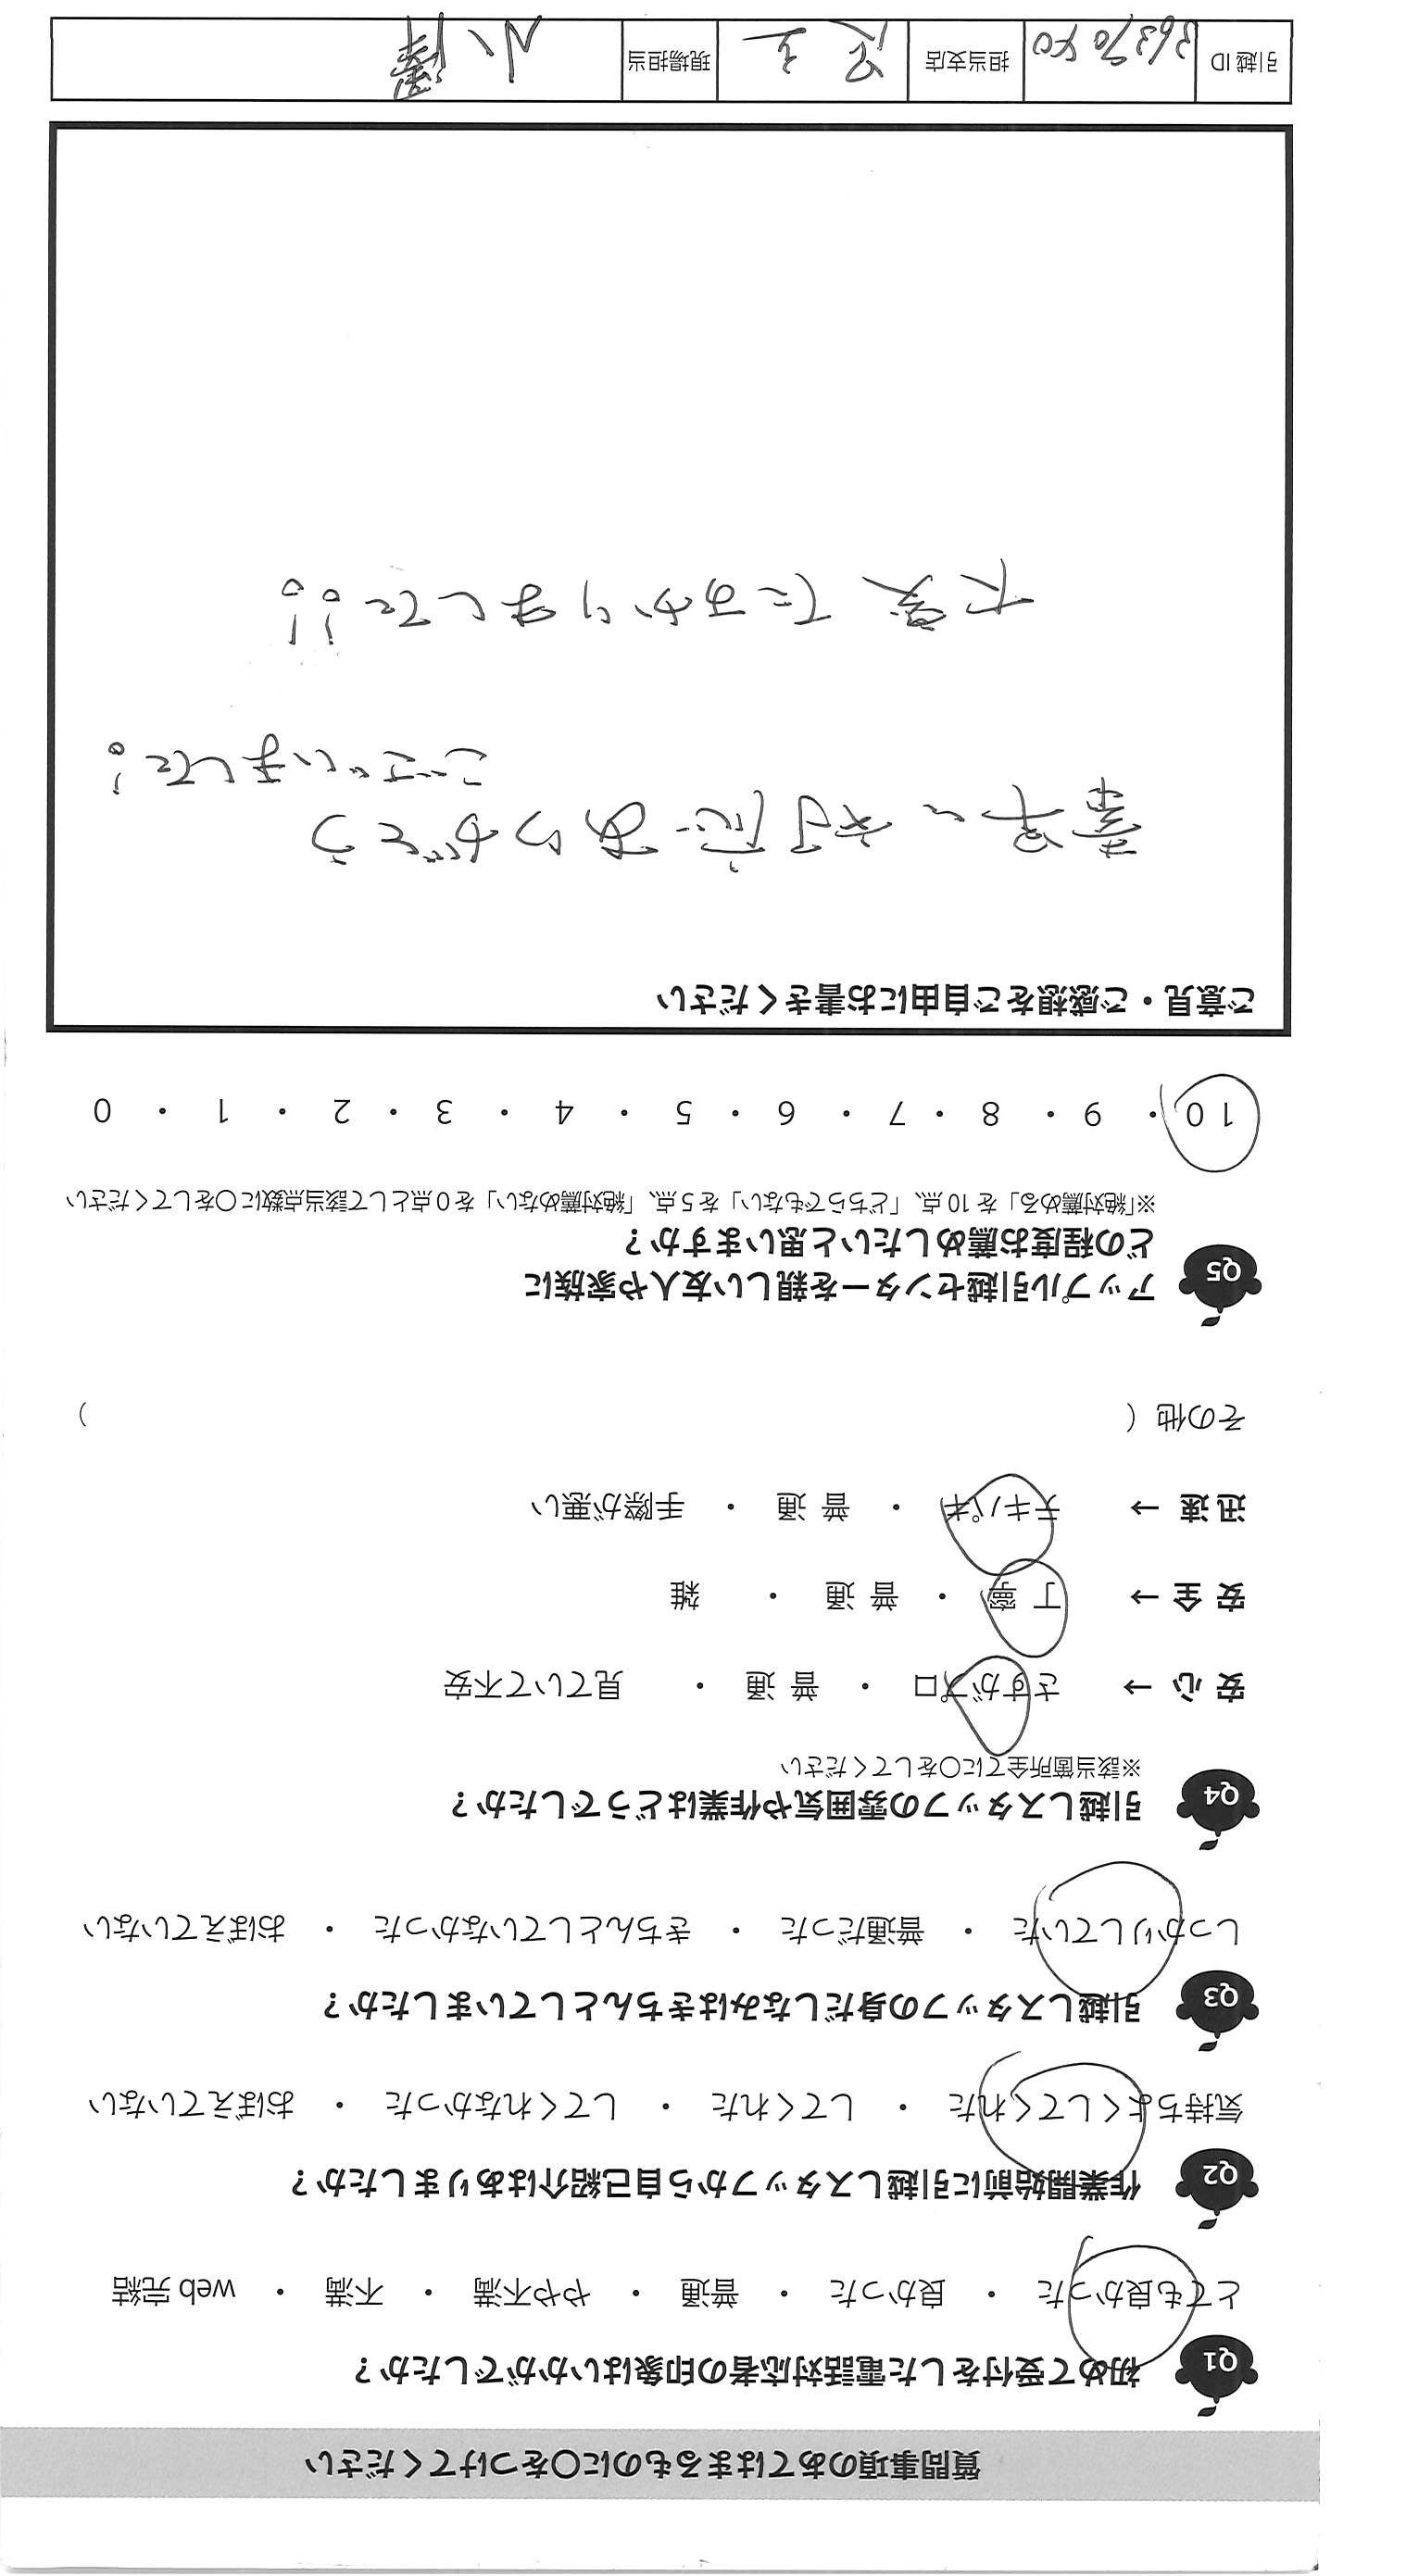 質問事項のあてはまるものに〇をつけてください
Q1 初めて受付をした電話対応者の印象はいかがでしたか？
とても良かった ・ 良かった ・ 普通 ・ やや不満 ・ 不満 ・ web 完結
Q2 作業開始前に引越しスタッフから自己紹介はありましたか？
気持ちよくしてくれた ・ してくれた ・ してくれなかった ・ おぼえていない
Q3 引越しスタッフの身だしなみはきちんとしていましたか？
しっかりしていた ・ 普通だった ・ きちんとしていなかった ・ おぼえていない
Q4 引越しスタッフの雰囲気や作業はどうでしたか？
※該当箇所全てに〇をしてください
安 心 → さすがプロ ・ 普 通 ・ 見ていて不安
安 全 → 丁 寧 ・ 普 通 ・ 雑
迅 速 → テキパキ ・ 普 通 ・ 手際が悪い
その他（ ）
Q5 アップル引越センターを親しい友人や家族に
どの程度お薦めしたいと思いますか？
※「絶対薦める」を 10 点、「どちらでもない」を 5 点、「絶対薦めない」を 0 点として該当点数に〇をしてください
10 ・ 9 ・ 8 ・ 7 ・ 6 ・ 5 ・ 4 ・ 3 ・ 2 ・ 1 ・ 0
ご意見・ご感想をご自由にお書きください
対応ありがとう
ございました！
大変たすかりました！！
引越 ID 3637040 担当支店 現場担当 小澤